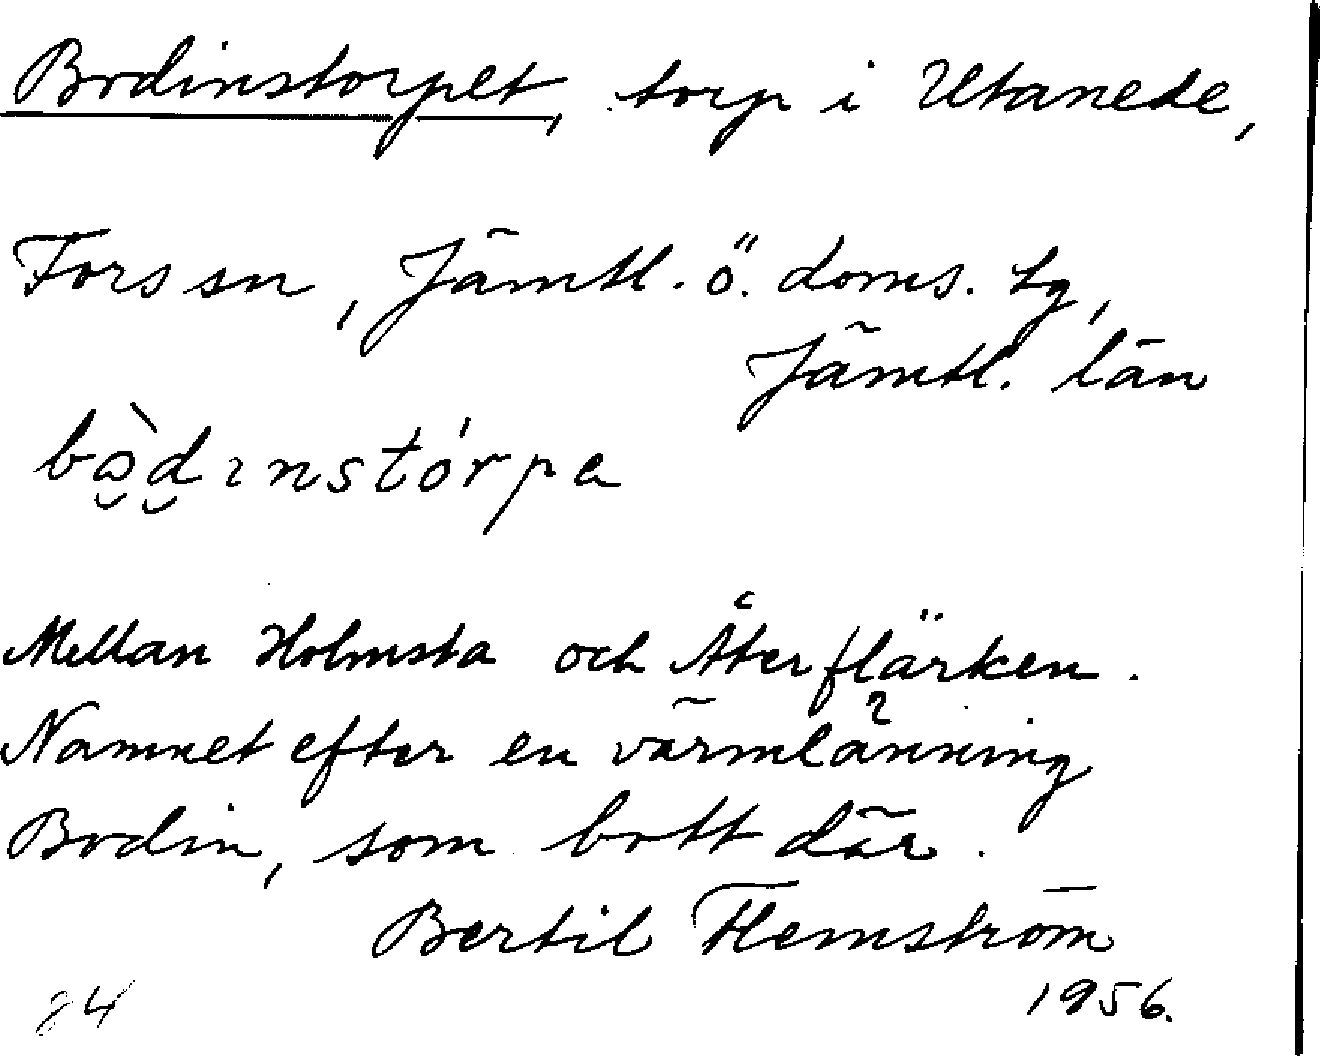 Bodinstorpet, torp i Utanede,
Fors sn, Jämtl. ö. doms. tg,
Jämtl. län
bòdinstórpa
Mellan Holmsta och Återflärken.
Namnet efter en värmlänning
Bodin, som bott där.
Bertil Flemström
1956.
24